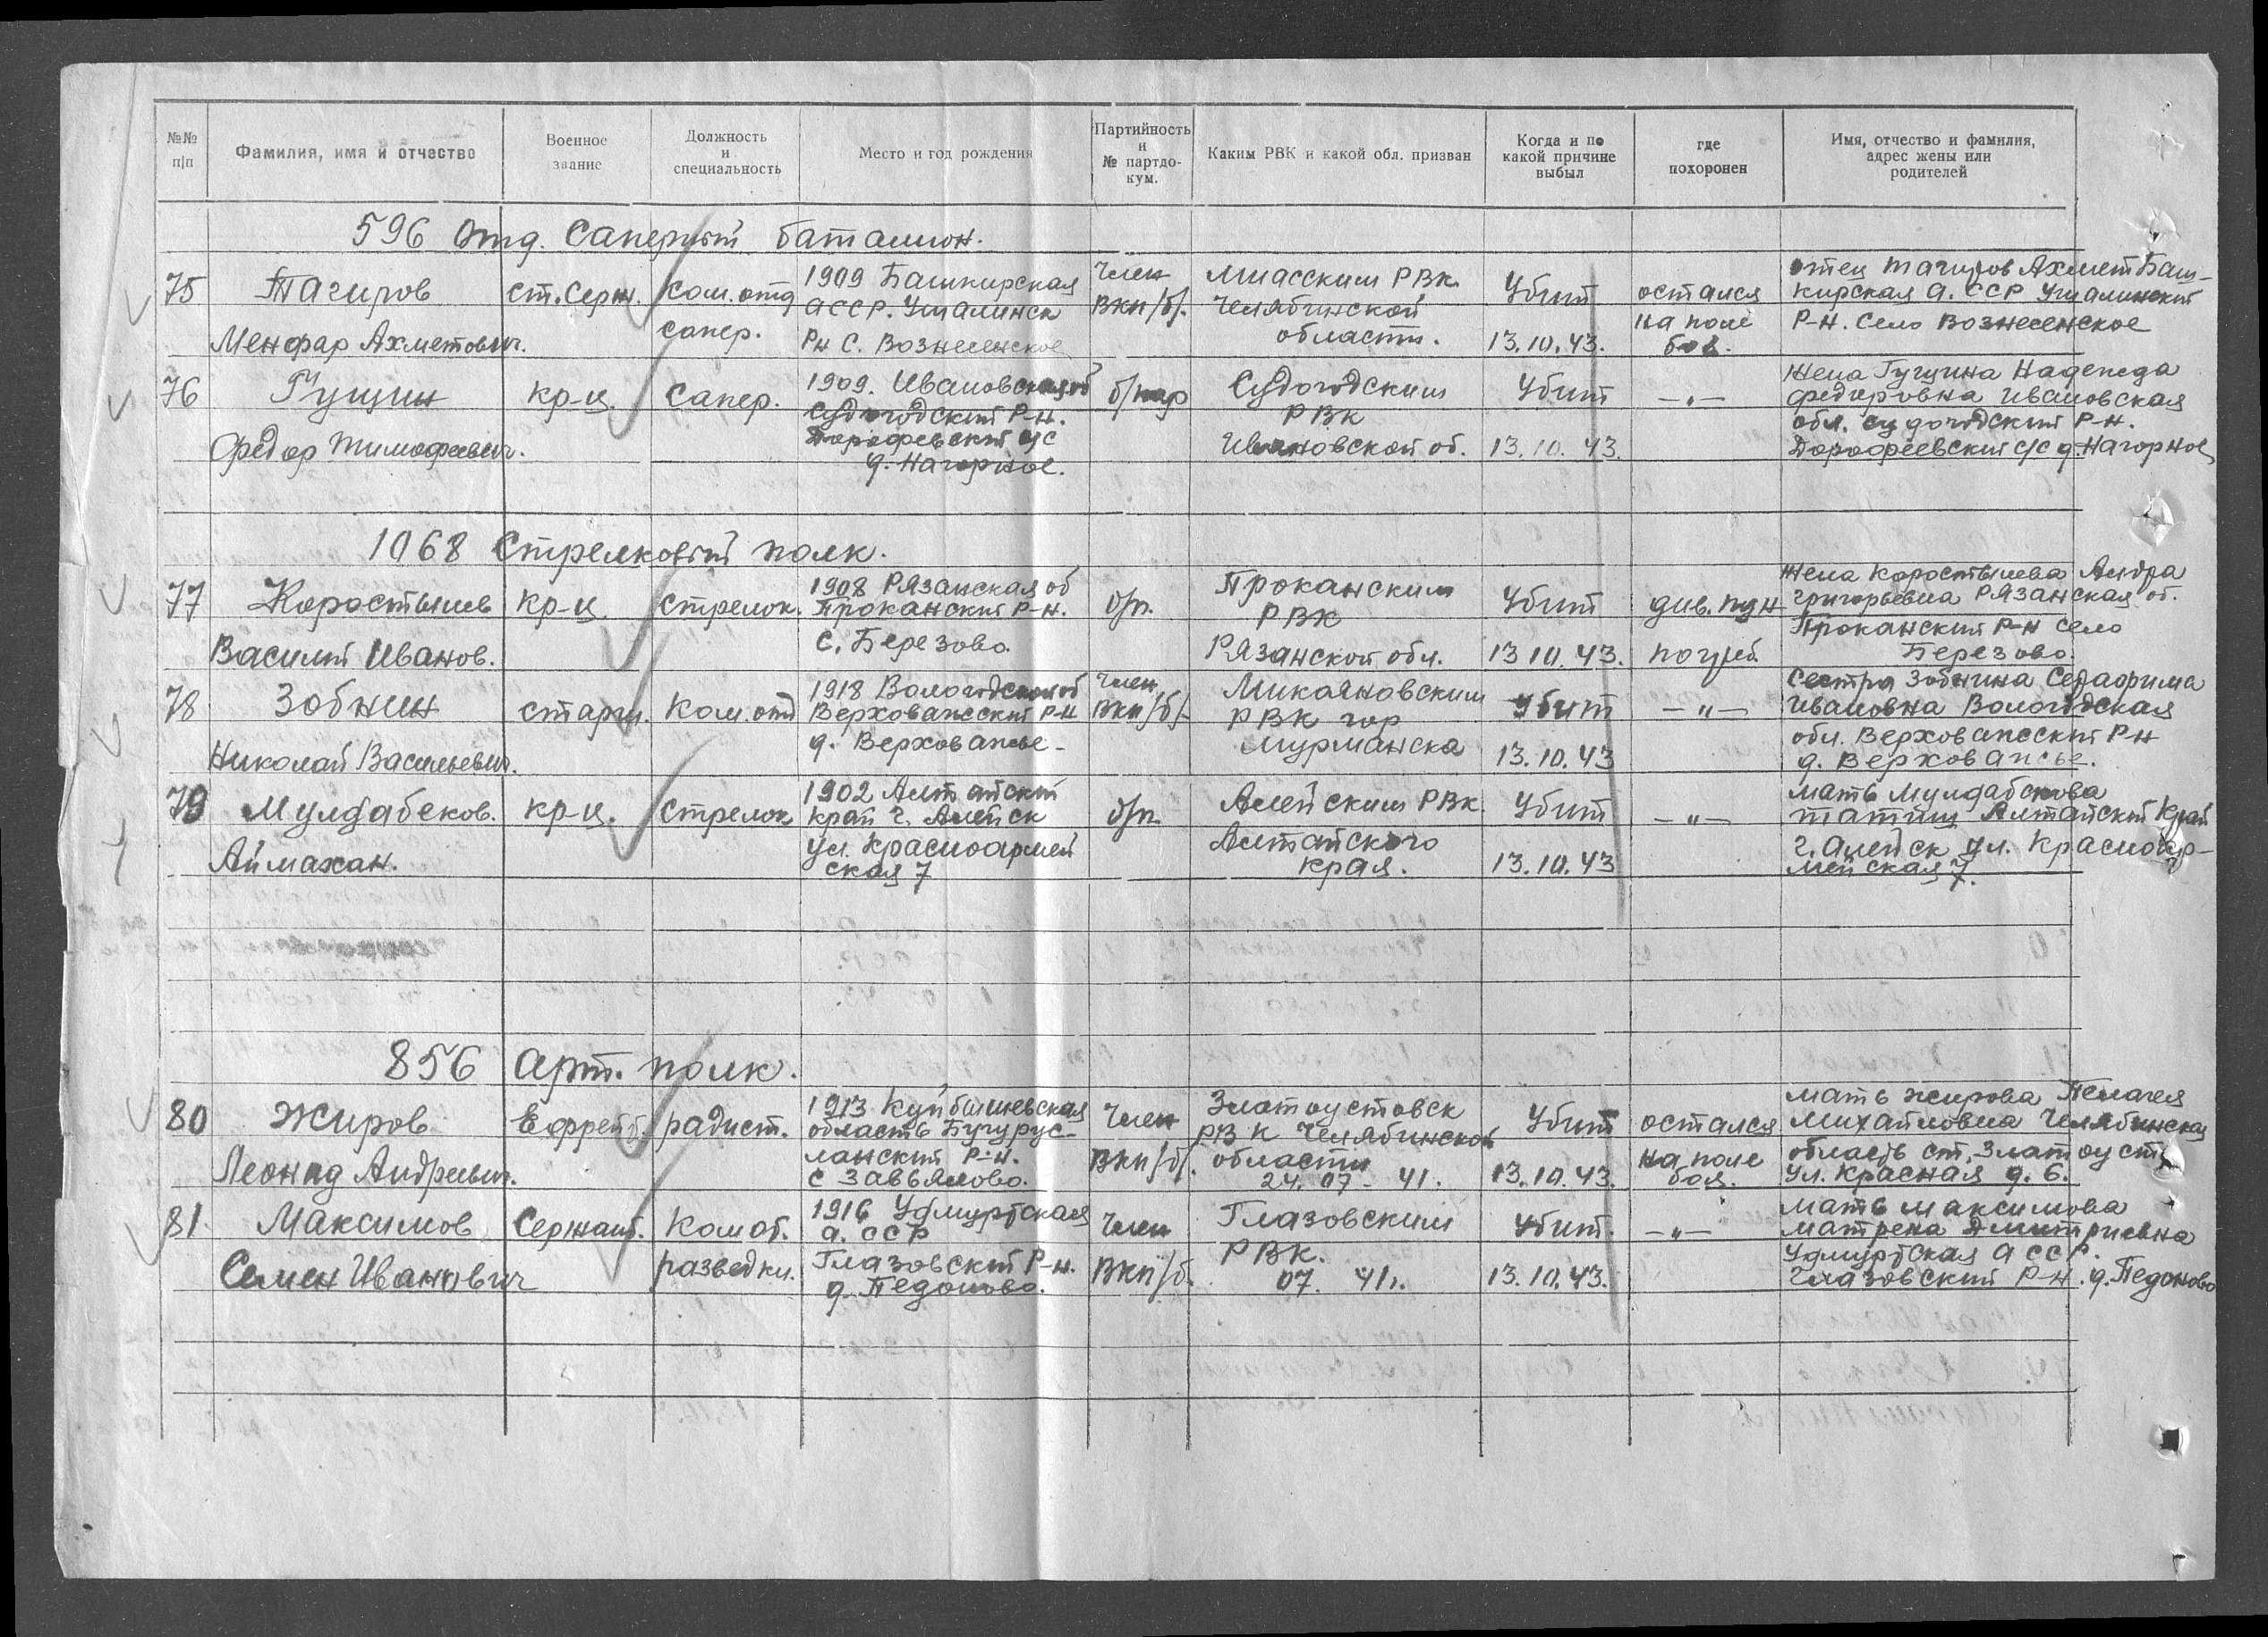 №№ п/п
Фамилия, имя и отчество
Военное звание
Должность и специальность
Место и год рождения
Партийность и № партдо-кум.
Каким РВК и какой обл. призван
Когда и по какой причине выбыл
где похоронен
Имя, отчество и фамилия, адрес жены или родителей
596 отд. Саперный баталион.
75
Тагиров
Менфар Ахметович.
ст. Серж.
ком. отд
сапер.
1909 Башкирская
АССР. Учалинск
Рн С. Вознесенское
Член
ВКП/б/.
Миасским РВК
Челябинской
области.
Убит
13.10.43.
остался
на поле
боя.
отец Тагиров Ахмет Баш-
кирская А.ССР Учалинский
Р-н. Село Вознесенское
76
Гущин
Федор Тимофеевич.
кр-ц.
Сапер.
1909. Ивановская об
Судогодский Р-н.
Дорофевский с/с
д. Нагорное.
б/пар
Судогодским
РВК
Ивановской об.
Убит
13.10.43.
—„—
Жена Гущина Надежда
Федоровна Ивановская
обл. Судогодский Р-н.
Дорофеевский с/с д. Нагорное
1068 Стрелковый полк.
77
Коростылев
Василий Иванов.
кр-ц.
Стрелок.
1908 Рязанская об
Проканский Р-н.
С. Березово.
б/п.
Проканским
РВК
Рязанской обл.
Убит
13 10.43.
див. пун
погреб.
Жена Коростылева
Григорьевна Рязанская об.
Проканский Р-н село
Березово.
78
Зобнин
Николай Васильевич.
старш.
Ком. отд
1918 Вологодской об
Верховажсский Р-н
д. Верховажье-
Член
ВКП/б/-
Микояновским
РВК гор
Мурманска
Убит
13.10.43
—„—
Сестра Зобнина Серафима
Ивановна Вологодская
обл. Верховажсский Р-н
д. Верховажье.
79
Мулдабеков.
Аймахан.
кр-ц.
Стрелок
1902 Алтайский
край г. Алейск
ул. Красноармей
ская 7
б/п.
Алейским РВК
Алтайского
края.
Убит
13.10.43
—„—
Мать Мулдабекова
Алтайский Край
г. Алейск ул. Краснояр-
мейская 7.
856 Арт. полк.
80
Жиров
Леонид Андреевич.
Ефрейт.
радист.
1913 Куйбышевская
область Бугурус-
ланский Р-н.
с Завьялово.
Член
ВКП/б/.
Златоустовск
РВК Челябинской
области
24. 07- 41.
Убит
13.10.43.
остался
на поле
боя.
Мать Жирова Пелагея
Михайловна Челябинская
область ст. Златоуст
ул. Красная д. 6.
81.
Максимов
Семен Иванович
Сержант.
Ком от.
разведки.
1916 Удмуртская
А.ССР
Глазовский Р-н.
д. Педоново.
Член
ВКП/б.
Глазовским
РВК.
07. 41г.
Убит.
13.10.43.
—„—
Мать Максимова
Матрена Дмитриевна
Удмуртская АССР.
Глазовский Р-н. д. Педоново